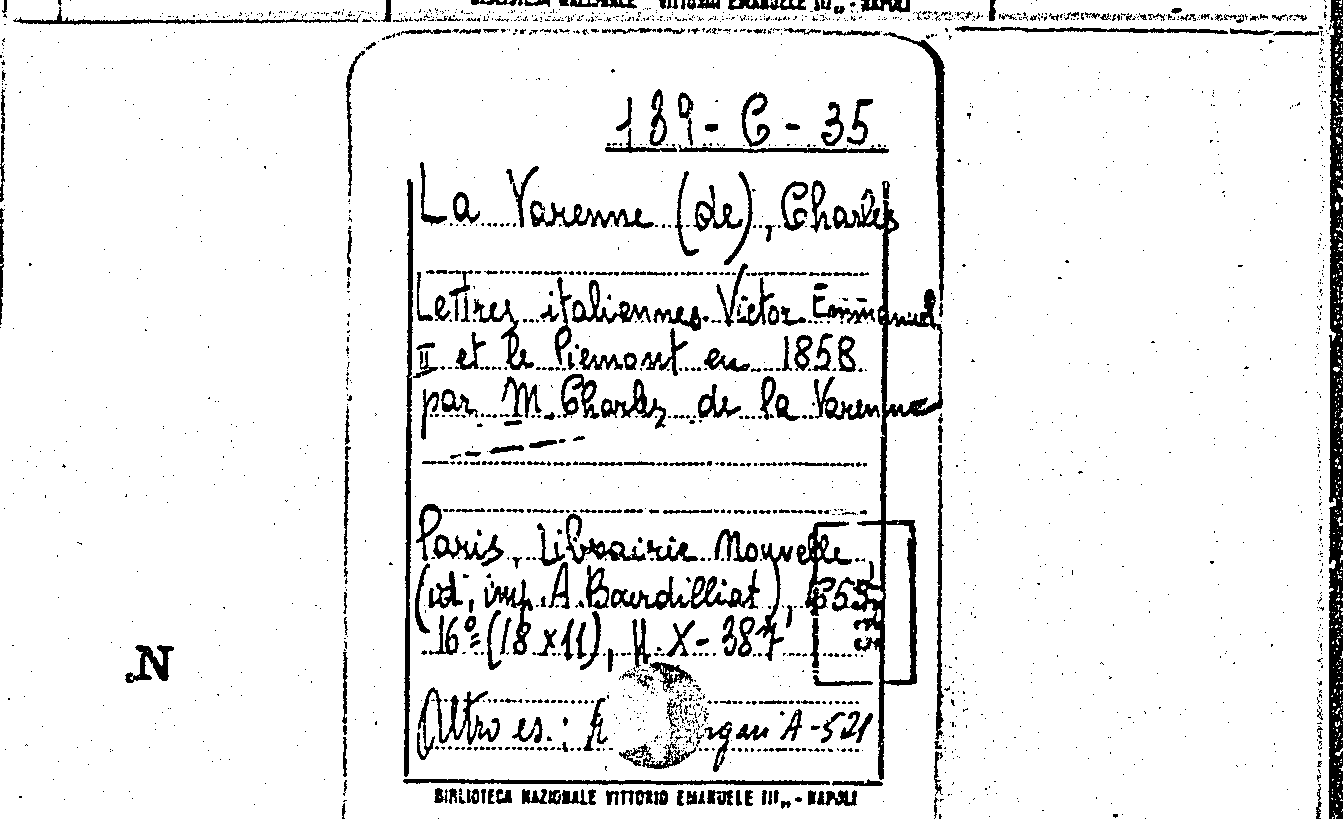 BIBLIOTECA NAZIONALE VITTORIO EMANUELE III„ - NAPOLI
189 - C - 35
La Varenne (de), Charles
Lettres italiennes. Victor Emmanuel
II et le Piemont en 1858
par M. Charles de la Varenne
Paris, Librairie Nouvelle,
(id, imp. A. Bourdilliat),
16º (18 x 11), pp. X - 387
.N
Altro es.: A - 521
BIBLIOTECA NAZIONALE VITTORIO EMANUELE III„ - NAPOLI